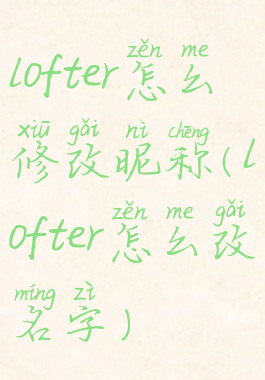 zěn me
lofter怎么
xiū gǎi nì chēng
修改昵称(l
zěn me gǎi
ofter怎么改
míng zì
名字)